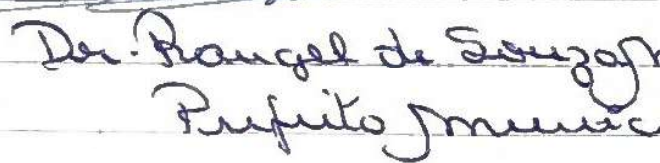 Dr. Rangel de Souza
Prefeito Munic